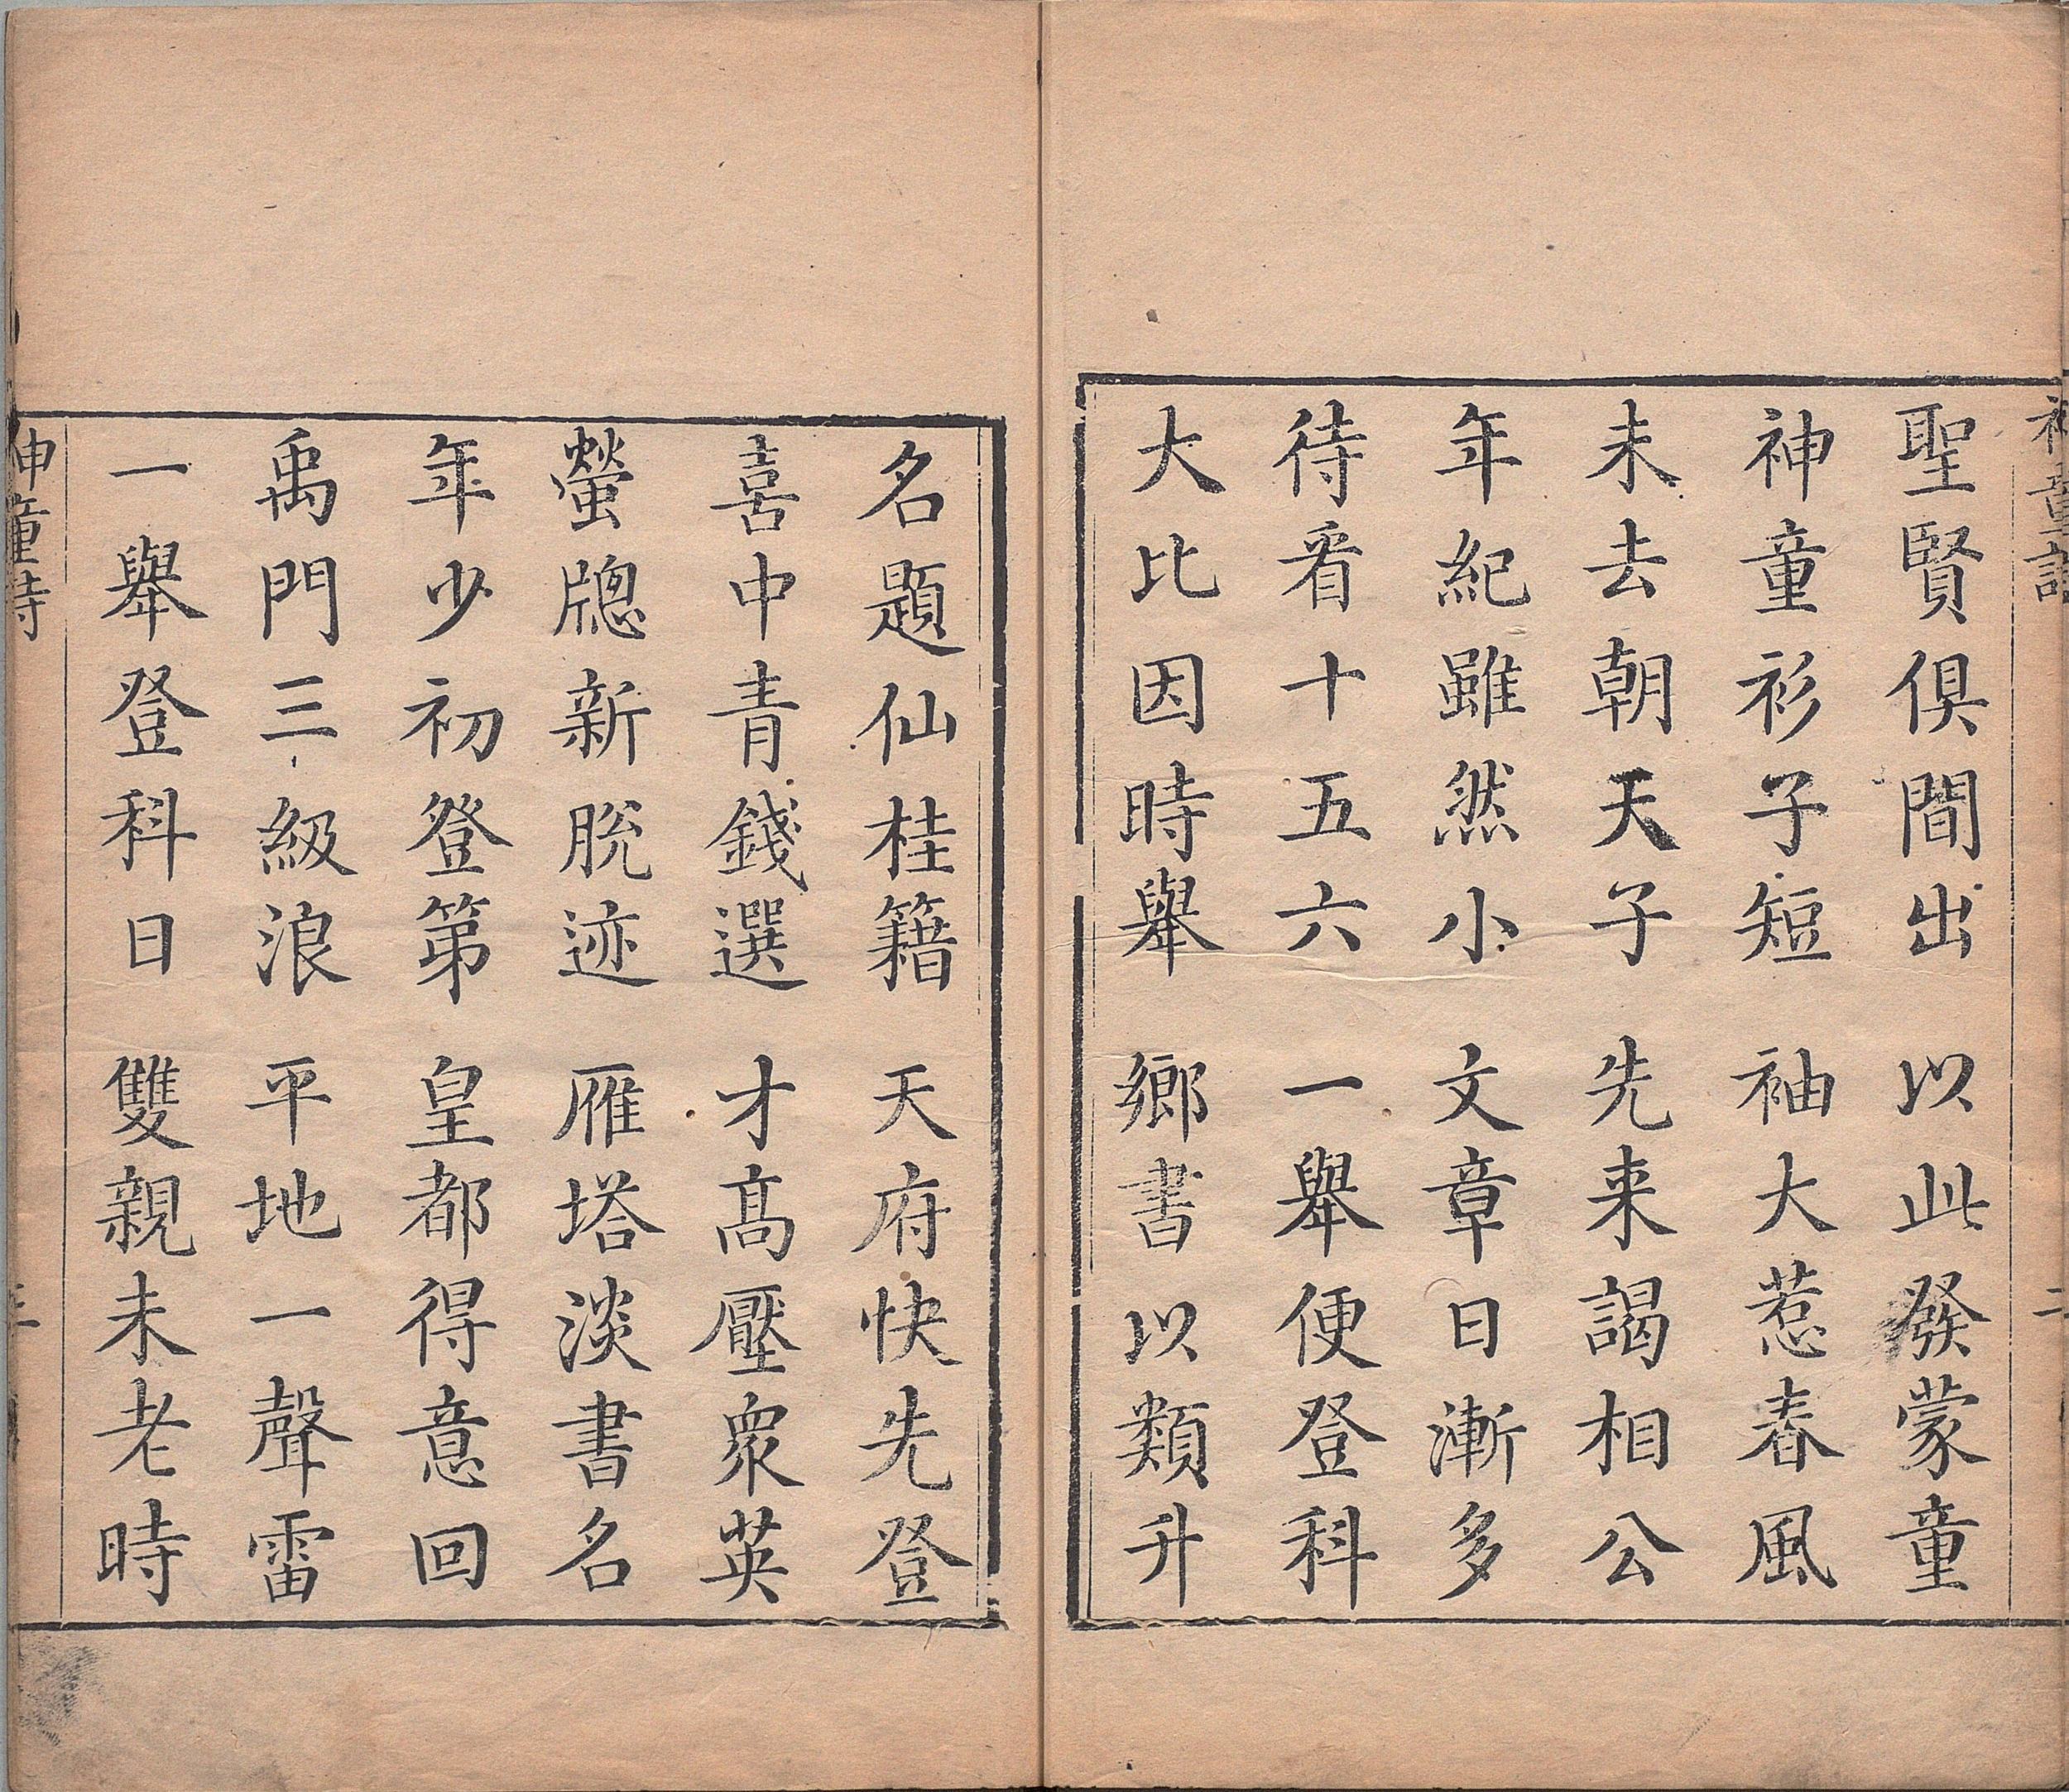 神童詩
二
聖賢俱間出 以此發蒙童
神童衫子短 袖大惹春風
未去朝天子 先来謁相公
年紀雖然小 文章日漸多
待看十五六 一舉便登科
大比因時舉 鄉書以類升
名題仙桂籍 天府快先登
喜中青錢選 才高壓衆英
螢牕新脫迹 雁塔淡書名
年少初登第 皇都得意回
禹門三級浪 平地一聲雷
一舉登科日 雙親未老時
神童詩
三